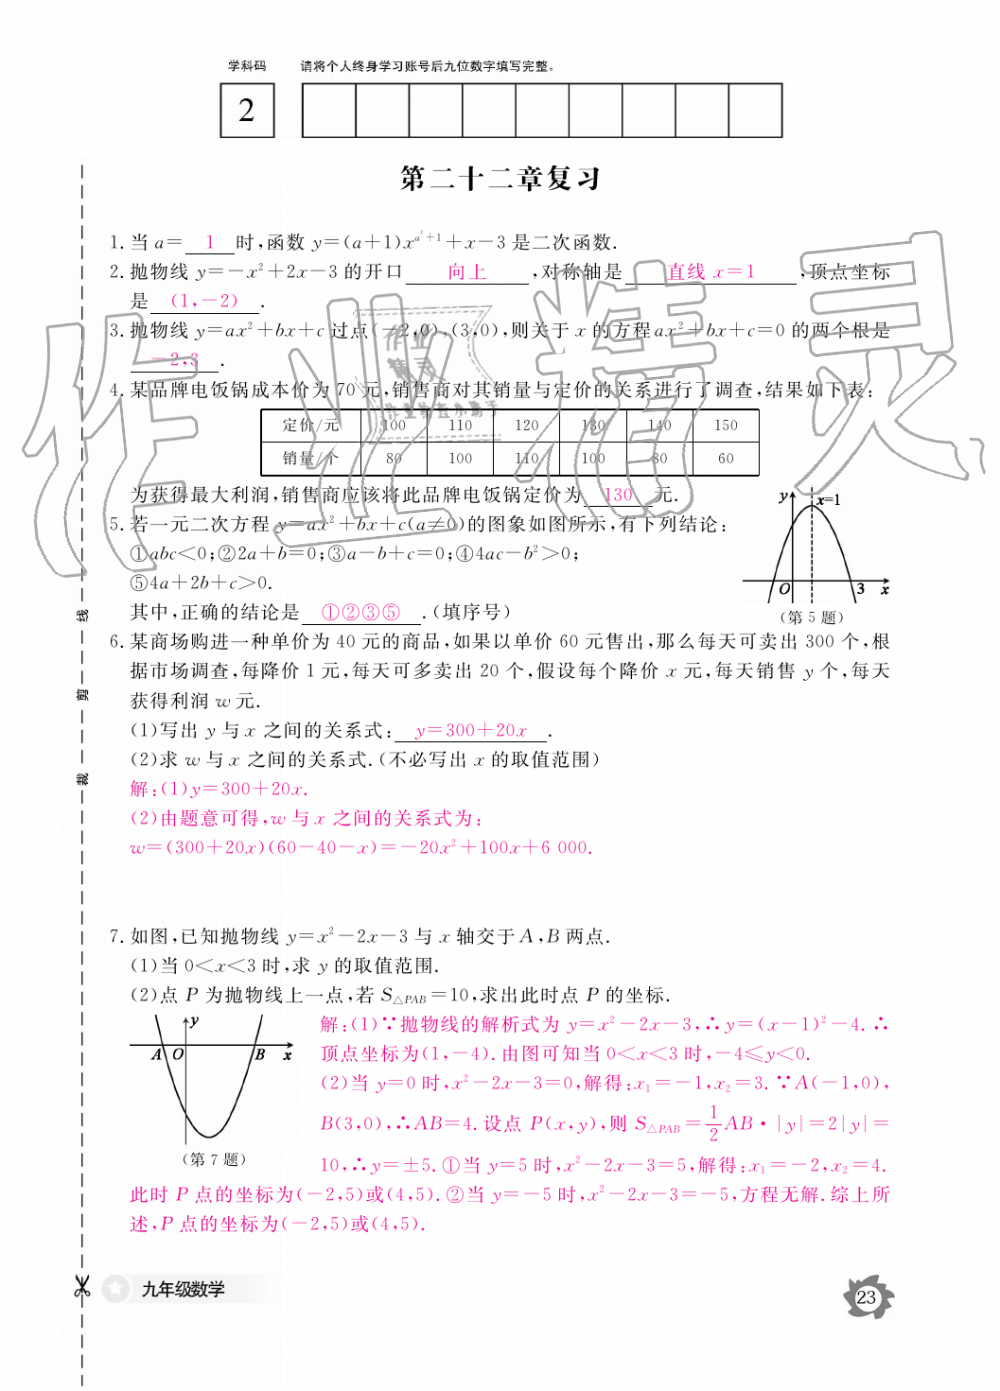 学科码 请将个人终身学习账号后九位数字填写完整。
2
第二十二章复习
1. 当 a= 1 时,函数 y=(a+1)x^{a²+1}+x-3 是二次函数.
2. 抛物线 y=-x²+2x-3 的开口 向上 ,对称轴是 直线 x=1 ,顶点坐标
是 (1,-2) .
3. 抛物线 y=ax²+bx+c 过点(-2,0),(3,0),则关于 x 的方程 ax²+bx+c=0 的两个根是
-2,3 .
4. 某品牌电饭锅成本价为 70 元,销售商对其销量与定价的关系进行了调查,结果如下表:
定价/元 100 110 120 130 140 150
销量/个 80 100 110 100 80 60
为获得最大利润,销售商应该将此品牌电饭锅定价为 130 元.
5. 若一元二次方程 y=ax²+bx+c(a≠0)的图象如图所示,有下列结论:
①abc<0;②2a+b=0;③a-b+c=0;④4ac-b²>0;
⑤4a+2b+c>0.
其中,正确的结论是 ①②③⑤ .(填序号)
y x=1
O 3 x
(第 5 题)
6. 某商场购进一种单价为 40 元的商品,如果以单价 60 元售出,那么每天可卖出 300 个,根
据市场调查,每降价 1 元,每天可多卖出 20 个,假设每个降价 x 元,每天销售 y 个,每天
获得利润 w 元.
(1)写出 y 与 x 之间的关系式: y=300+20x .
(2)求 w 与 x 之间的关系式.(不必写出 x 的取值范围)
解:(1)y=300+20x.
(2)由题意可得,w 与 x 之间的关系式为:
w=(300+20x)(60-40-x)=-20x²+100x+6 000.
7. 如图,已知抛物线 y=x²-2x-3 与 x 轴交于 A,B 两点.
(1)当 0<x<3 时,求 y 的取值范围.
(2)点 P 为抛物线上一点,若 S△PAB=10,求出此时点 P 的坐标.
y
A O B x
(第 7 题)
解:(1)∵抛物线的解析式为 y=x²-2x-3,∴y=(x-1)²-4. ∴
顶点坐标为(1,-4). 由图可知当 0<x<3 时,-4≤y<0.
(2)当 y=0 时,x²-2x-3=0,解得:x₁=-1,x₂=3. ∵A(-1,0),
B(3,0),∴AB=4. 设点 P(x,y),则 S△PAB=1/2 AB·|y|=2|y|=
10,∴y=±5. ①当 y=5 时,x²-2x-3=5,解得:x₁=-2,x₂=4.
此时 P 点的坐标为(-2,5)或(4,5). ②当 y=-5 时,x²-2x-3=-5,方程无解. 综上所
述,P 点的坐标为(-2,5)或(4,5).
线
剪
裁
九年级数学
23
作业精灵
作业
精灵